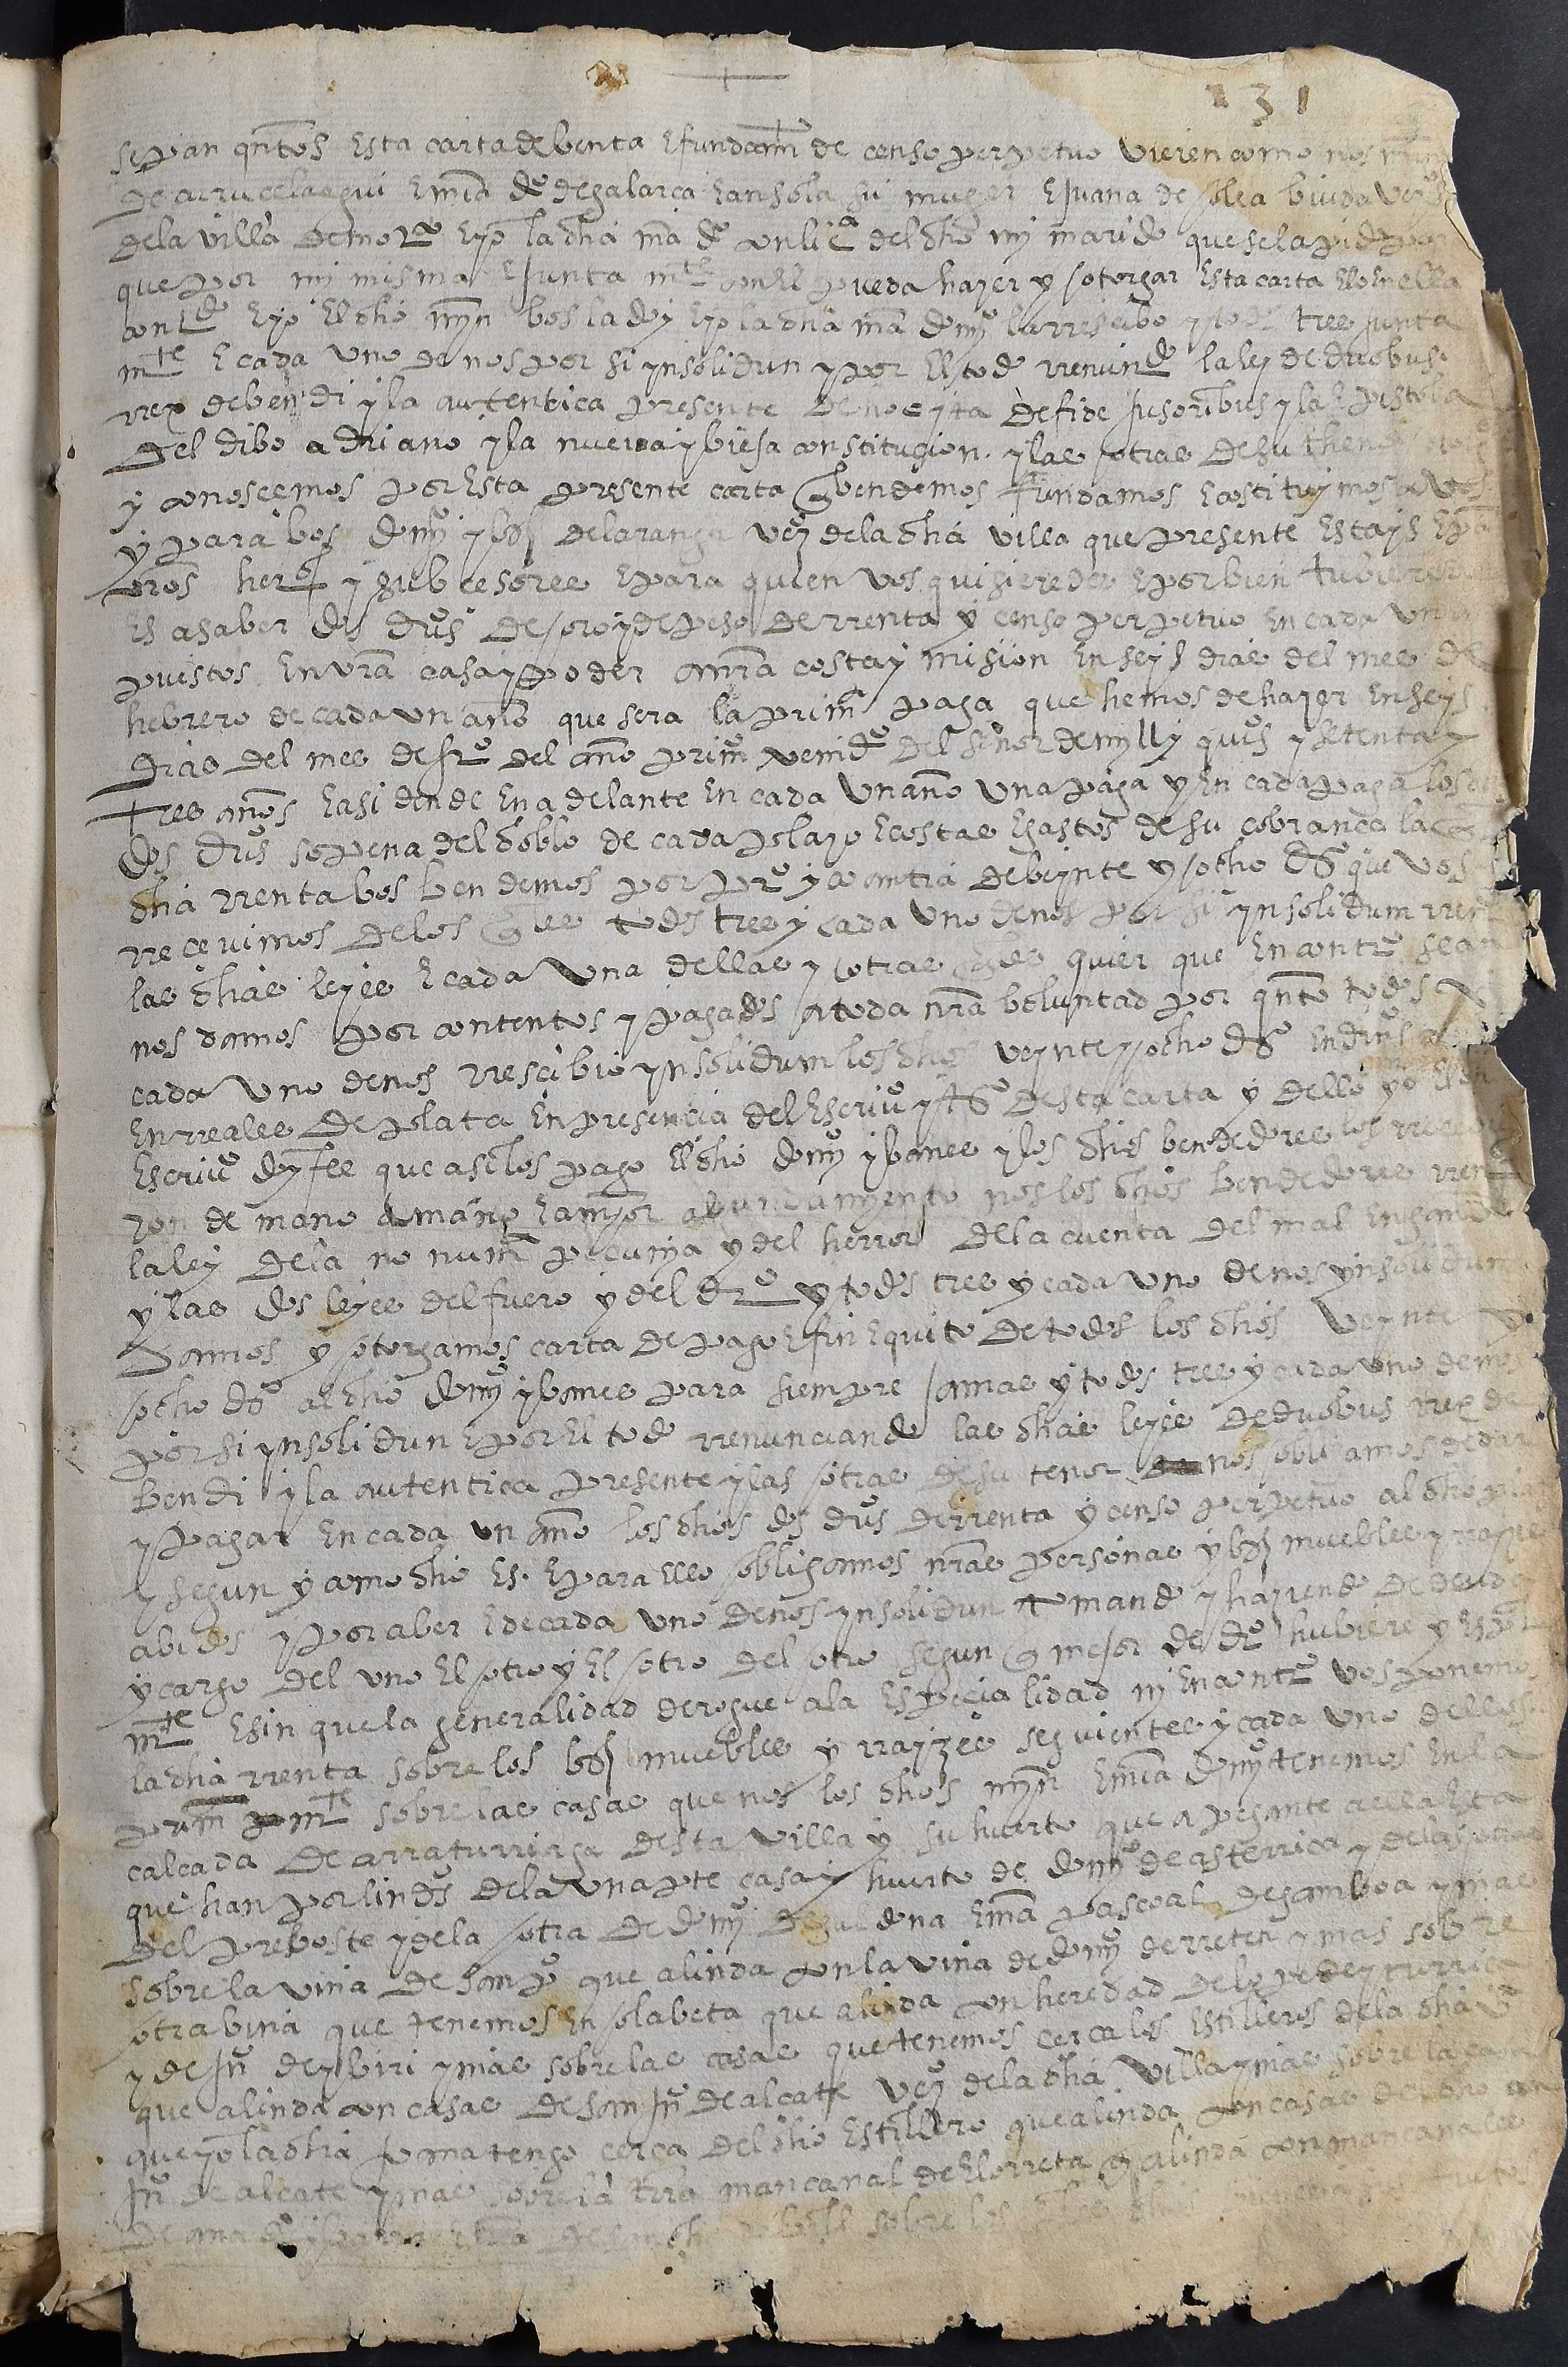 131
sepan qntos esta carta de benta e fundamto de censo perpetuo vieren como nos
de aurucelaegui e mra dgo de galarca eansola su muger e juana de olea biuda vezos
de la villa de mo eyo la dha ma dgo con lica del dho mi marido que se la pido para
que por mi misma e junta mte con el pueda hazer y otorgar esta carta e lo en ella
contdo e yo el dho myn bos la doy e yo la dha ma domgo la rrescibo y todos tres junta
mte e cada uno de nos por si ynsolidun y por el todo rrenundo la ley de duobus
rrex debendi y la autentica presente de fide jusoribus y la epistola
del dibo adriano y la nueva y bieja constitucion y las otras de su thenor
y conoscemos por esta presente carta q bendemos fundamos e costituymos a vos
y para bos domgo ybs de laranga vezo de la dha villa que presente estays e pa
vros heros y subcesores e para quien vos quisieredes e por bien tubieredes
es a saber dos dus de oro y de peso de rrenta y censo perpetuo en cada un
puestos en vra casa y poder a nra costa y mision en seys dias del mes de
hebrero de cada un año que sera la prima paga que hemos de hazer en seys
dias del mes de fro del año primo venido del señor de mill y quios y setenta y
tres años e asi dende en adelante en cada un año una paga y en cada paga los dhos
dos dus so pena del doblo de cada plazo e costas e gastos de su cobranca la ql
dha rrenta bos bendemos por pro y contia de beynte y ocho ds que vos
rrecevimos de los qles todos tres y cada uno de nos por si ynsolidum rrendo
las dhas leyes e cada una dellas y otras qles quier que en contro sean
nos damos por contentos y pagados a toda nra boluntad por qnto todos y
cada uno de nos rrescibio ynsolidum los dhos veynte y ocho ds en dinos
en rreales de plata en presencia del escriuo y tos desta carta y dello yo el dho
escriuo doy fee que asi los pago el dho domgo ybanes y los dhos bendedores los rrecivie
ron de mano a mano e a mayor abundamyento nos los dhos bendedores rrendo
la ley de la no numa pecunia y del herror de la cuenta del mal engaño
y las dos leyes del fuero y del dro y todos tres y cada uno de nos ynsolidum
damos y otorgamos carta de pago e fin e quito de todos los dhos veynte y
ocho ds al dho domgo ybanes para siempre jamas y todos tres y cada uno de nos
por si ynsolidun e por el todo rrenunciando las dhas leyes de duobus rrex de
bendi y la autentica presente y las otras de su tenor nos obligamos de dar
y pagar en cada un año los dhos dos dus de rrenta y censo perpetuo al dho plazo
y segun y como dho es e para ello obligamos nras personas y bs muebles y rrayzes
abidos y por aber e de cada uno de nos ynsolidun tomando y haziendo de deuda
y cargo del uno el otro y el otro del otro segun q mejor de dro hubiere y espeçial
mte e sin que la generalidad derogue a la especialidad ni en contro vos ponemos
la dha rrenta sobre los bs muebles y rrayzes seguientes y cada uno dellos
prima mte sobre las casas que nos los dhos myn e mra domgo tenemos en la
calcada de arraturriaga desta villa y su huerto que a pegante a ella esta
que han por lindos de la una pte casa y huerto de domgo de asterrica y de las otras
del preboste y de la otra de domgo de galdona e ma pascoal de gamboa y mas
sobre la vina de san po que alinda con la vina de domgo de rreten y mas sobre
otra bina que tenemos en olabeta que alinda con heredad de lope de yturrica
y de jn de ybiri y mas sobre las casas que tenemos cerca los estilleros de la dha va
que alinda con casas de san jn de alcate vezo de la dha villa y mas sobre la casa
que yo la dha juana tengo cerca del dho estillero que alinda con casas del dho san
jn de alcate y mas sobre la trra mancanal de elorreta q alinda con mancanales